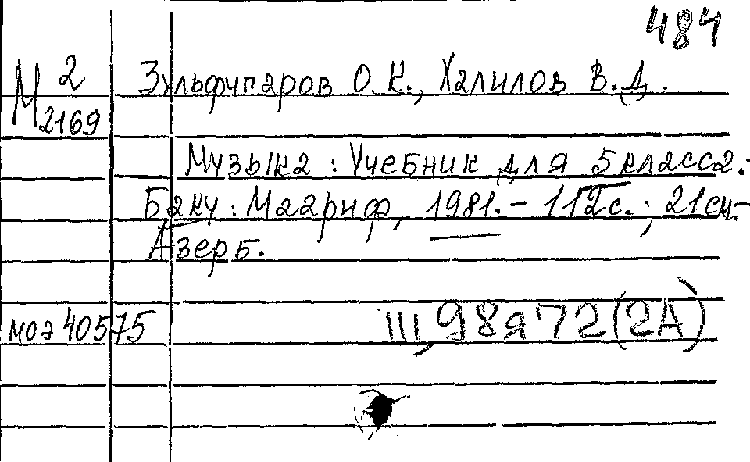 484
М 2
2169
Зульфугаров О.К., Халилов В.Д.
Музыка : Учебник для 5 класса.-
Баку : Маариф, 1981. - 112с. ; 21см.-
Азерб.
моэ 40575
Щ,98я72(2А)